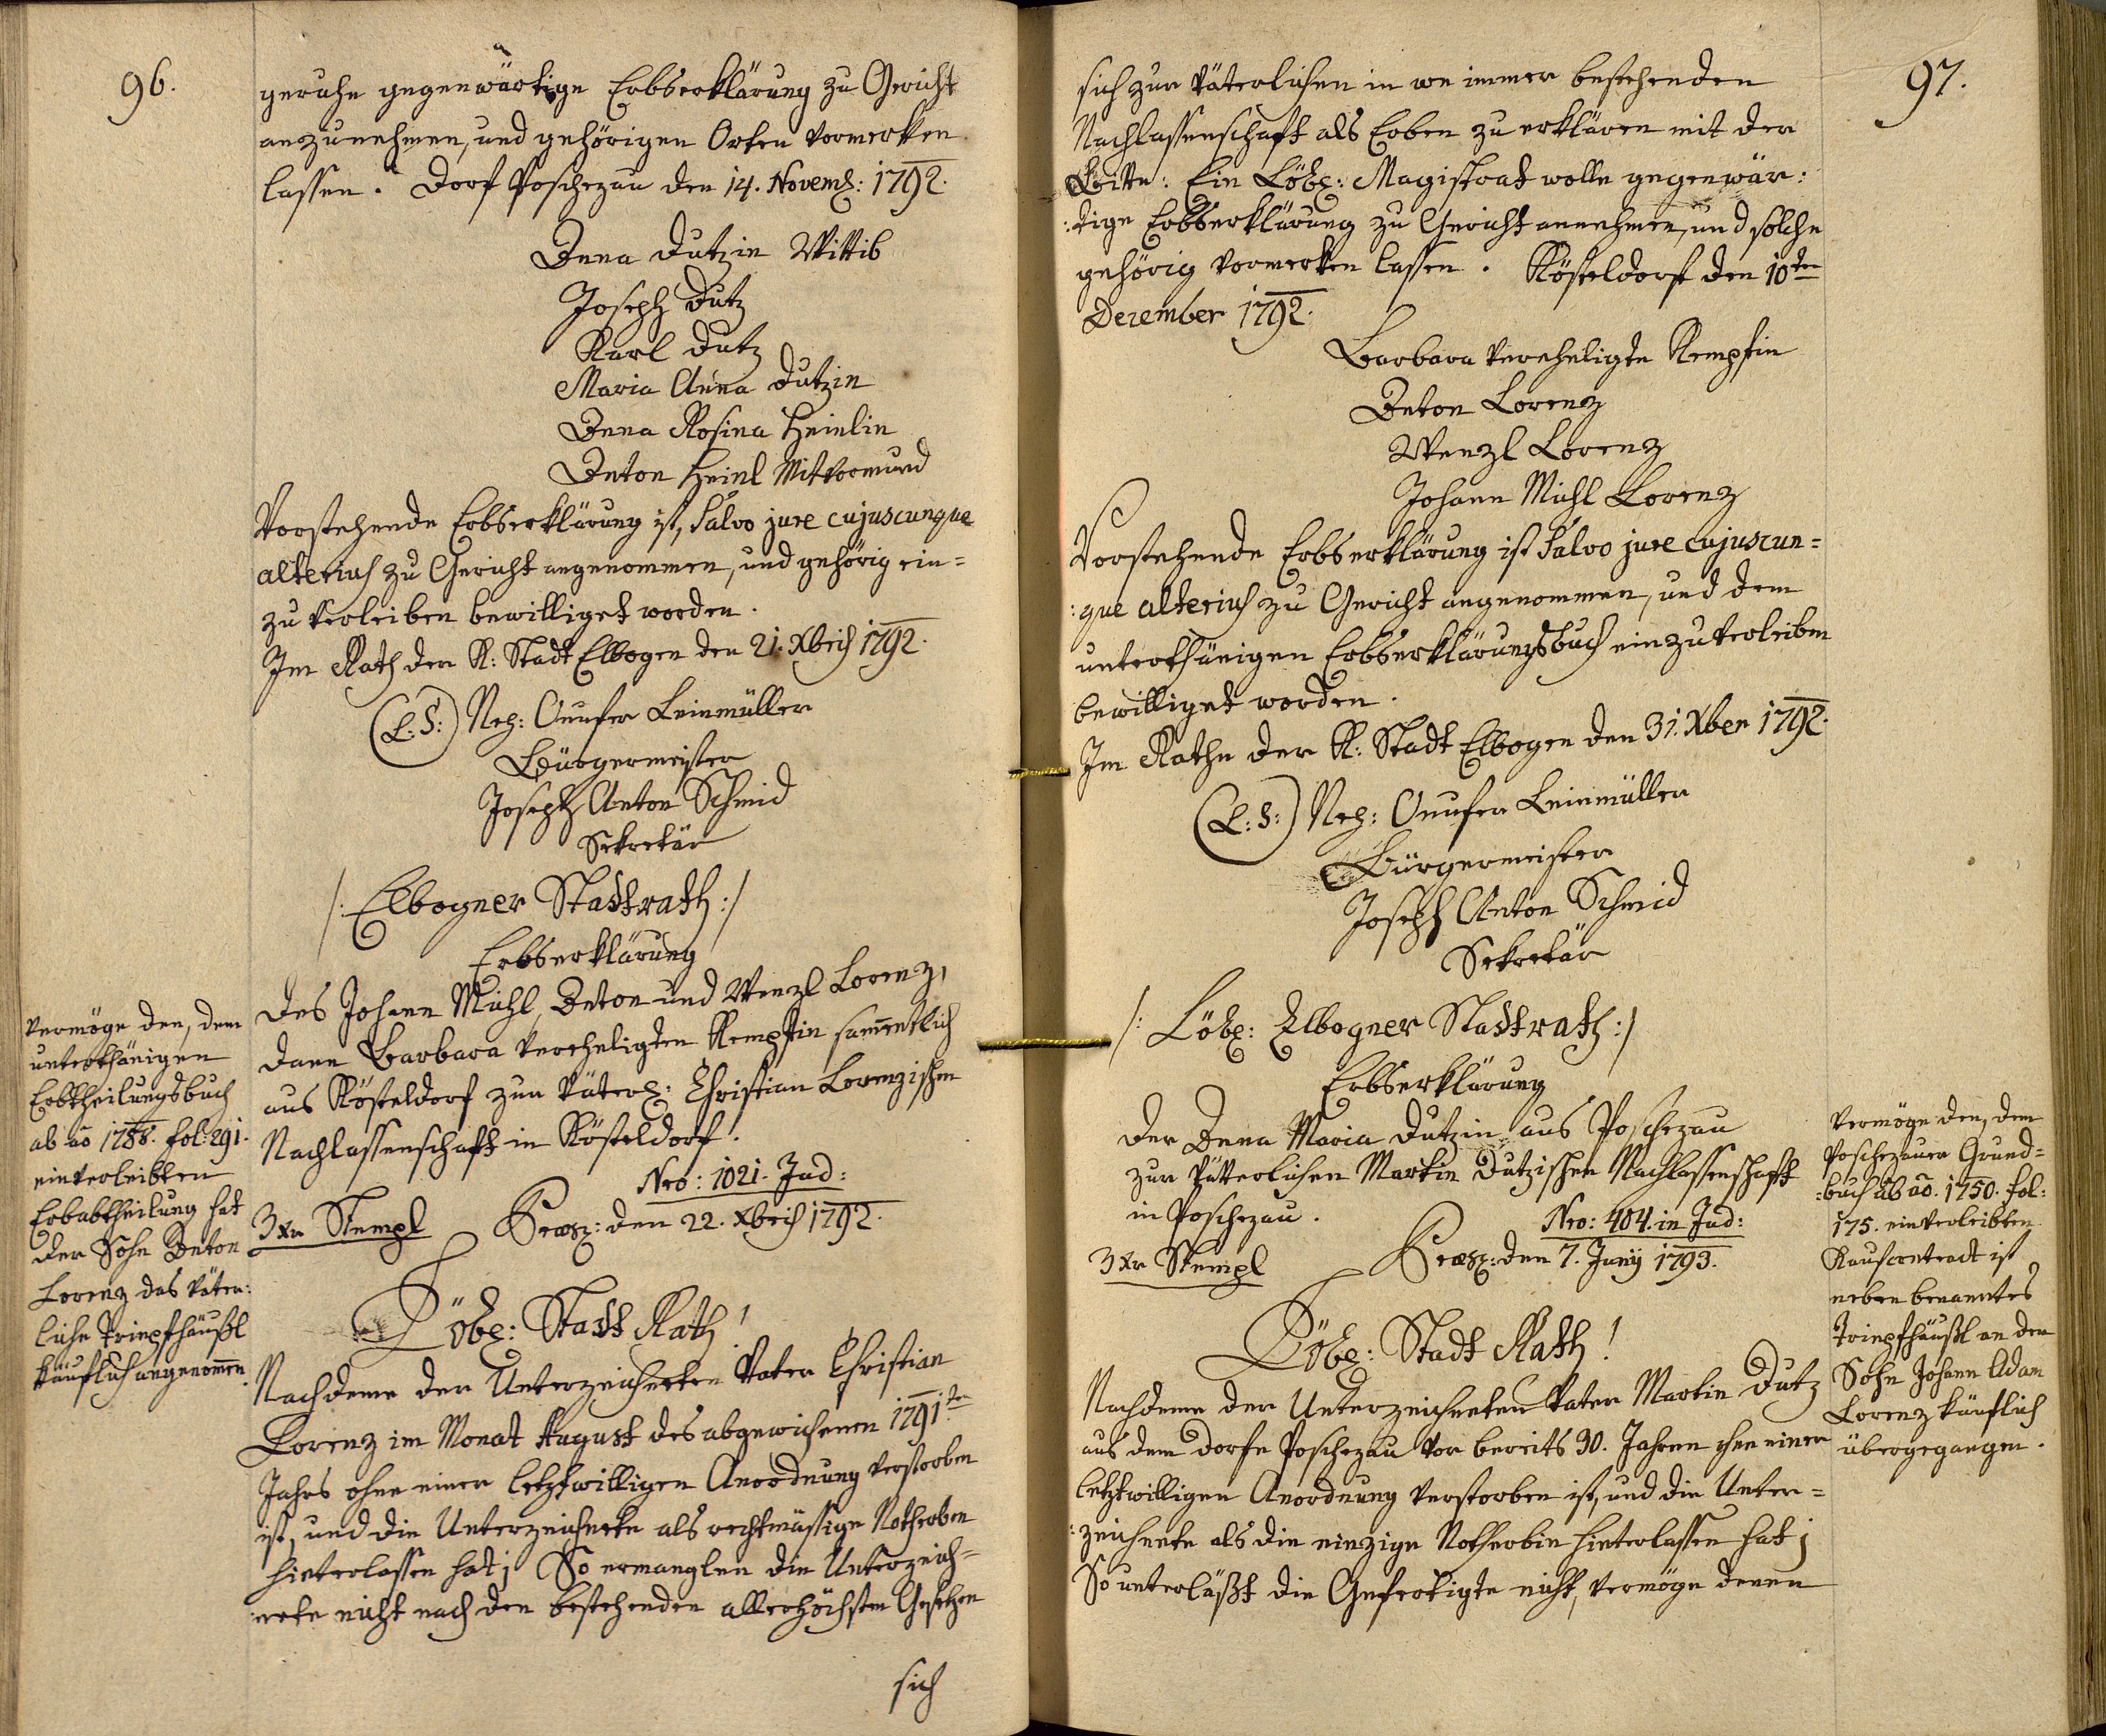 96.
geruhe gegenwärtige Erbserklärung zu Gericht
anzunehmen, und gehörigen Orten vormerken
lassen. Dorf Poschezau den 14. Novemb: 1792.
Anna Dutzin Wittib
Joseph Dutz
Karl Dutz
Maria Anna Dutzin
Anna Rosina Heinlin
Anton Heinl Mitvormund
Vorstehende Erbserklärung ist, Salvo jure cujuscunque
alterius zu Gericht angenommen, und gehörig ein=
zuverleiben bewilliget worden.
Im Rath der K: Stadt Elbogen den 21. Xbris 1792.
(L: S:) Nep: Onufer Leinmüller
Bürgermeister
Joseph Anton Schmid
Sekretär
/: Elbogner Stadtrath :/
Erbserklärung
des Johann Michl, Anton und Wenzl Lorenz,
dann Barbara verehligten Kempfin sam̄entlich
aus Kösteldorf zur väterl: Christian Lorenzischen
Nachlassenschaft in Kösteldorf.
Nro: 1021. Jud:
3 Xr Stempl Praes: den 22. Xbris 1792.
Löbl: Stadt Rath!
Nachdeme der Unterzeichneten Vater Christian
Lorenz im Monat August des abgewichenen 1791ten
Jahrs ohne einer letztwilligen Anordnung verstorben
ist, und die Unterzeichnete als rechtmässige Notherben
hinterlassen hat; So ermanglen die Unterzeich=
nete nicht nach den bestehenden allerhöchsten Gesetzen
sich
Vermöge den, dem
unterthänigen
Erbtheilungsbuch
ab aõ 1788. fol: 291.
einverleibten
Erbabtheilung hat
der Sohn Anton
Lorenz das väter:
liche Tripfhäußl
käuflich angenom̄en.
97.
sich zur väterlichen in we immer bestehenden
Nachlassenschaft als Erben zu erklären mit der
Bitte: Ein Löbl: Magistrat wolle gegenwär:
:tige Erbserklärung zu Gericht annehmen, und solche
gehörig vormerken lassen. Kösteldorf den 10ten
Dezember 1792.
Barbara verehligte Kempfin
Anton Lorenz
Wenzl Lorenz
Johann Michl Lorenz
Vorstehende Erbserklärung ist Salvo jure cujuscun=
:que alterius zu Gericht angenommen, und dem
unterthänigen Erbserklärungsbuch einzuverleiben
bewilliget worden.
Im Rathe der K: Stadt Elbogen den 31. Xber 1792.
(L: S:) Nep: Onufer Leinmüller
Bürgermeister
Joseph Anton Schmid
Sekretär
/: Löbl: Elbogner Stadtrath :/
Erbserklärung
der Anna Maria Dutzin aus Poschezau
zur vätterlichen Martin Dutzischen Nachlassenschaft
in Poschezau.
Nro: 404. in Jud:
3 Xr Stempl Praes: den 7. Juny 1793.
Löbl: Stadt Rath!
Nachdeme der Unterzeichneten Vater Martin Dutz
aus dem Dorfe Poschezau vor bereits 30. Jahren ohne einer
letztwilligen Anordnung verstorben ist, und die Unter=
:zeichnete als die einzige Notherbin hinterlassen hat;
So unterläßt die Gefertigte nicht, vermöge denen
Vermöge den, dem
Poschezauer Grund=
:buch ab aõ. 1750. fol:
175. einverleibten
Kaufcontract ist
neben benanntes
Tripfhäußl an den
Sohn Johann Adam
Lorenz käuflich
übergegangen.